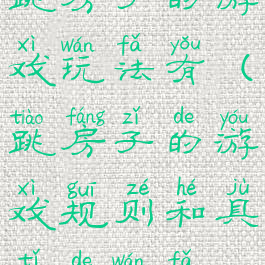 跳房子的游
xì wán fǎ yǒu
戏玩法有（
tiào fáng zǐ de yóu
跳房子的游
xì guī zé hé jù
戏规则和具
tǐ de wán fǎ